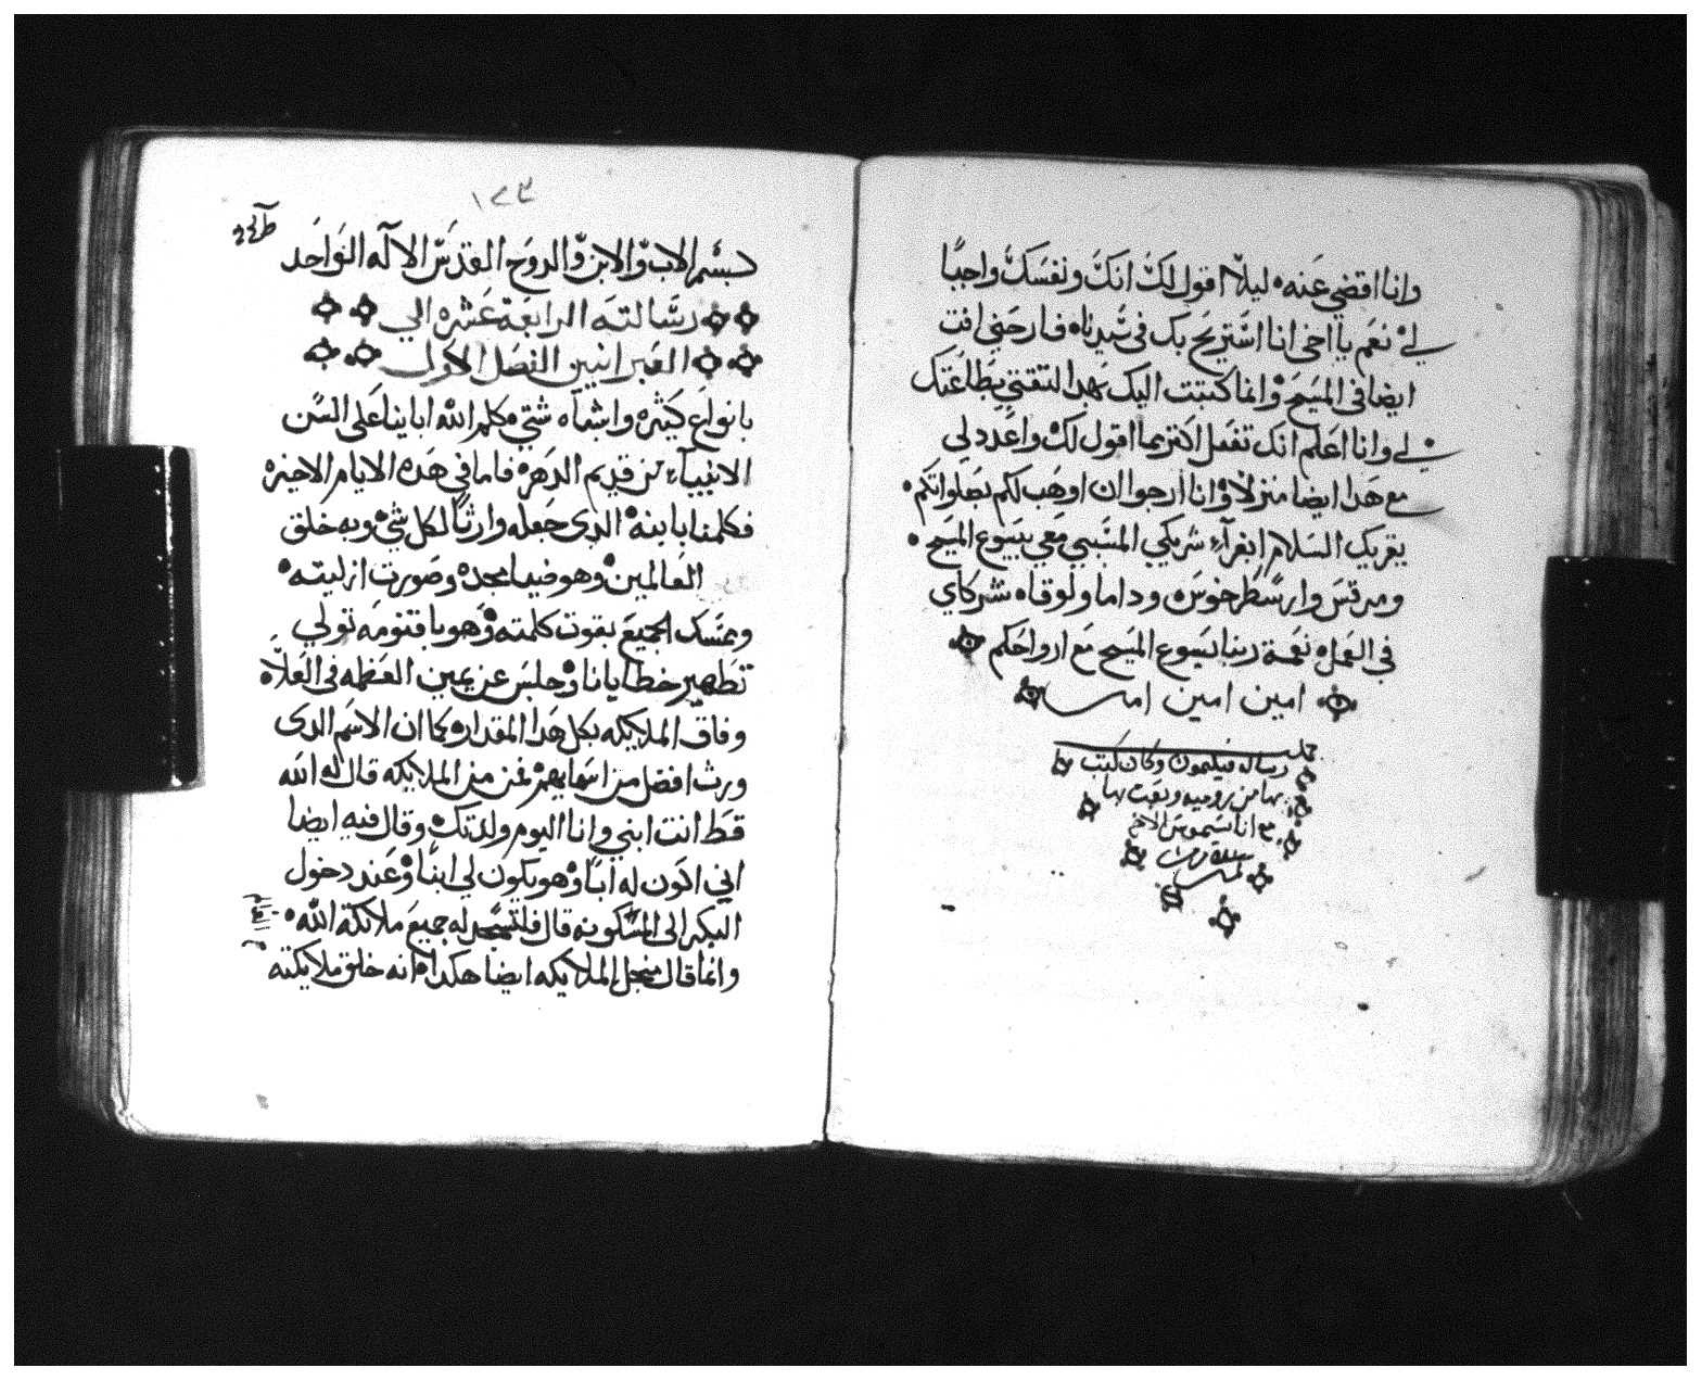 وانا اقضي عنه ليلا اقول لك انك ونفسك واجبا
لي نعم يا اخي انا استريح بك في سيدناه فارحني انت
ايضا في المسيح وانما كتبت اليك بهدا لتقتي بطاعتك
لي وانا اعلم انك تفعل اكتر مما اقول لك واعدد لي
مع هدا ايضا منزلا وانا ارجوا ان اوهب لكم بصلواتكم
يقريك السلام ابفرآء شريكي المتسبي معي بيسوع المسيح
ومرقس وارسطرخوس وداما ولوقاه شركاي
في العمل نعمة ربنا يسوع المسيح مع ارواحكم
امين امين امين
كملت
رساله فيليمون وكان كتب
بها من روميه وبعت بها
مع انا سيموس الاخ
١٢٣
بسم الاب والابن والروح القدس الالاه الواحد
رسالته الرابعة عشره الي
العبرانيين الفصل الاول
بانواع كثيره واشباه شتي كلم الله اباينا علي السن
الانبياء من قديم الدهر فاما في هده الايام الاخيره
فكلمنا بابنه الدي جعله وارثا لكل شي وبه خلق
العالمين وهو ضيا مجده وصورت ازليته
وممسك الجميع بقوت كلمته وهو باقنومه تولي
تطهير خطايانا وجلس عن يمين العظمه في العلاه
وفاق الملايكه بكل هدا المقداره كما ان الاسم الدي
ورث افضل من اسمايهم فمن من الملايكه قال له الله
قط انت ابني وانا اليوم ولدتك وقال فيه ايضا
اني اكون له ابا وهو يكون لي ابنا وعند دخول
البكر الي المسكونه قال فلتسجد له جميع ملائكة الله
وانما قال من اجل الملايكه ايضا هكداه انه خلق ملايكته